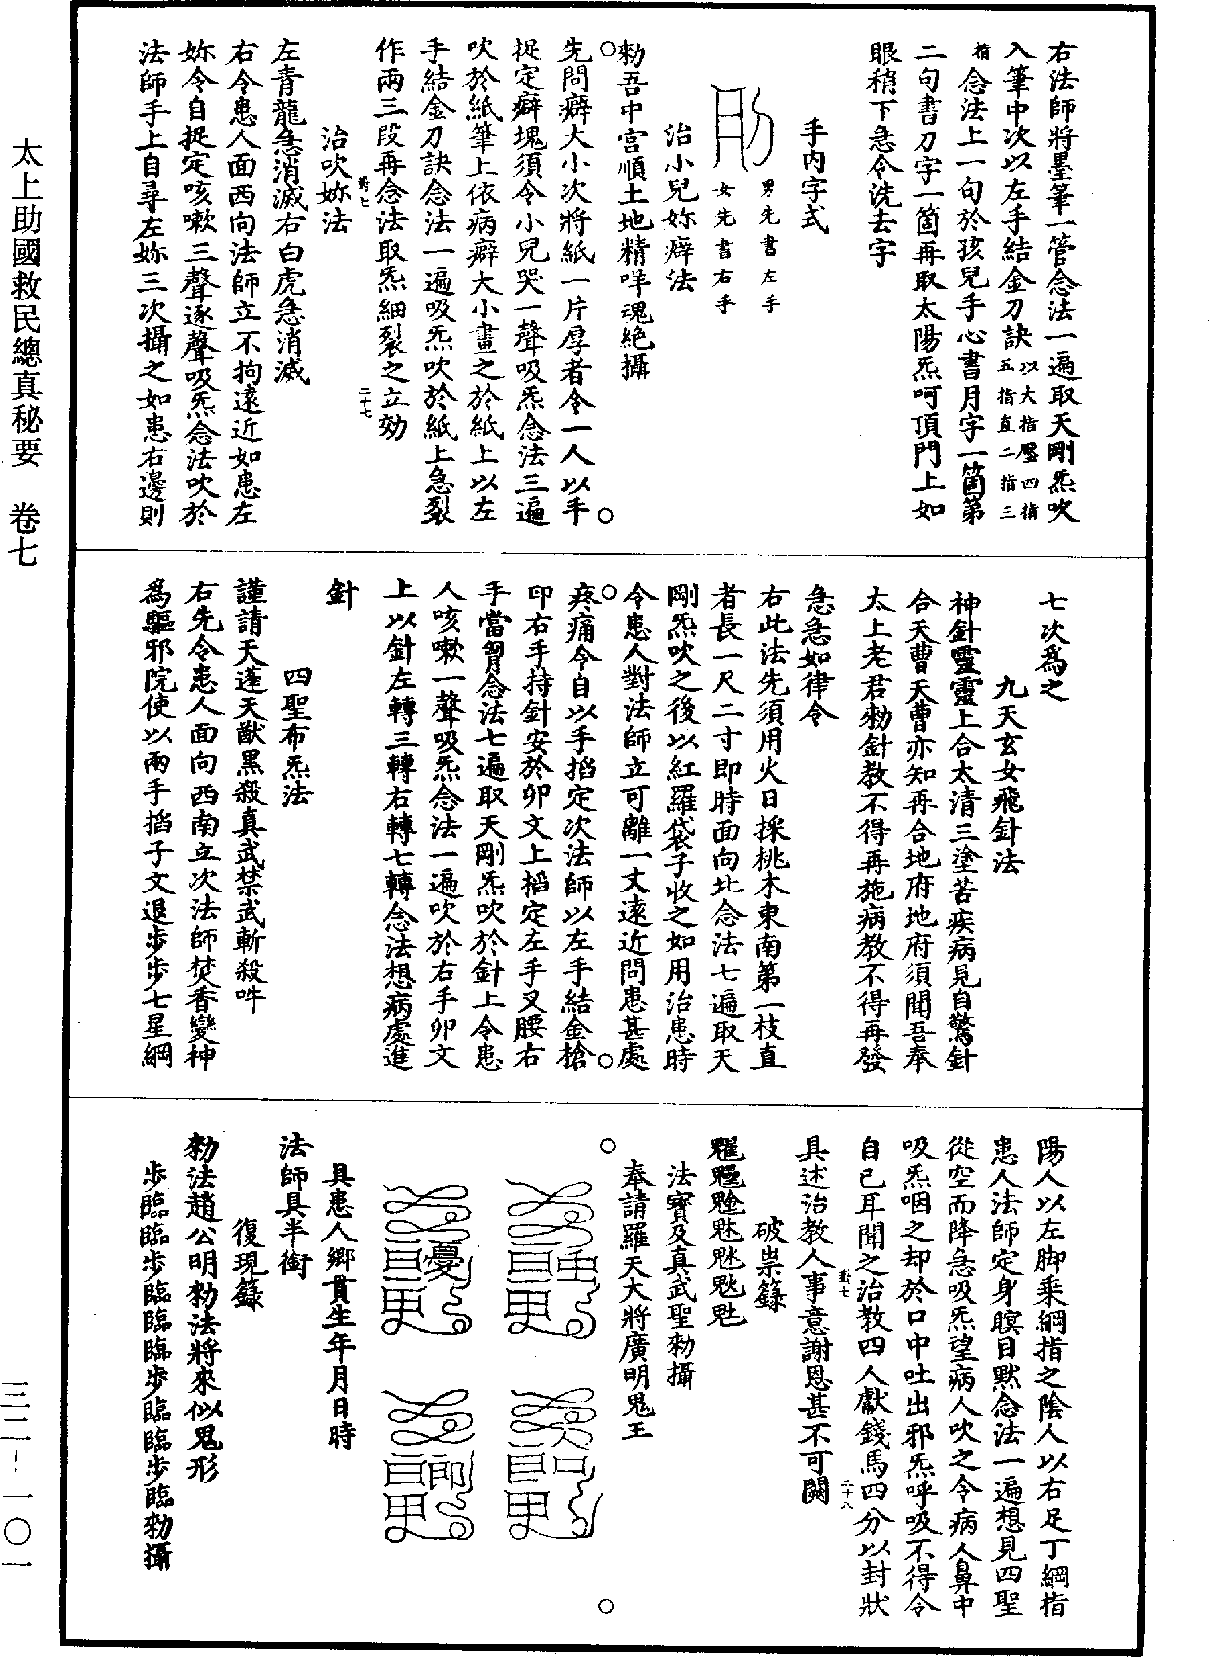 右法師將墨筆一管念法一遍取天剛炁吹
入筆中次以左手結金刀訣以大指壓四指五指直二指三
指念法上一句於孩兒手心書月字一箇第
二句書刀字一箇再取太陽炁呵頂門上如
眼稍下急令洗去字
手內字式
男先書左手
女先書右手
治小兒妳癖法
勑吾中宮順土地精咩魂絕攝
先問癖大小次將紙一片厚者令一人以手
捉定癖塊須令小兒哭一聲吸炁念法三遍
吹於紙筆上依病癖大小畫之於紙上以左
手結金刀訣念法一遍吸炁吹於紙上急裂
作兩三段再念法取炁細裂之立効
對七
二十七
治吹妳法
左青龍急消滅右白虎急消滅
右令患人面西向法師立不拘遠近如患左
妳令自捉定咳嗽三聲逐聲吸炁念法吹於
法師手上自尋左妳三次攝之如患右邊則
七次為之
九天玄女飛針法
神針靈靈上合太清三塗苦疾病見自驚針
合天曹天曹亦知再合地府地府須聞吾奉
太上老君勑針教不得再施病教不得再發
急急如律令
右此法先須用火日採桃木東南第一枝直
者長一尺二寸即時面向北念法七遍取天
剛炁吹之後以紅羅袋子收之如用治患時
令患人對法師立可離一丈遠近問患甚處
疼痛令自以手掐定次法師以左手結金槍
印右手持針安於卯文上掐定左手叉腰右
手當胷念法七遍取天剛炁吹於針上令患
人咳嗽一聲吸炁念法一遍吹於右手卯文
上以針左轉三轉右轉七轉念法想病處進
針
四聖布炁法
謹請天蓬天猷黑殺真武禁武斬殺吽
右先令患人面向西南立次法師焚香變神
為驅邪院使以兩手掐子文退步步七星綱
陽人以左脚乘綱指之陰人以右足丁綱指
患人法師定身瞑目默念法一遍想見四聖
從空而降急吸炁望病人吹之令病人鼻中
吸炁咽之却於口中吐出邪炁呼吸不得令
自己耳聞之治教四人獻錢馬四分以封狀
具述治教人事意謝恩甚不可闕
對七
二十八
破祟籙
法寶及真武聖勑攝
奉請羅天大將廣明鬼王
具患人鄉貫生年月日時
法師具半銜
復現籙
勑法趙公明勑法將來似鬼形
步臨臨步臨臨臨步臨臨步臨勑攝
太上助國救民總真秘要　卷七
三二－一〇一